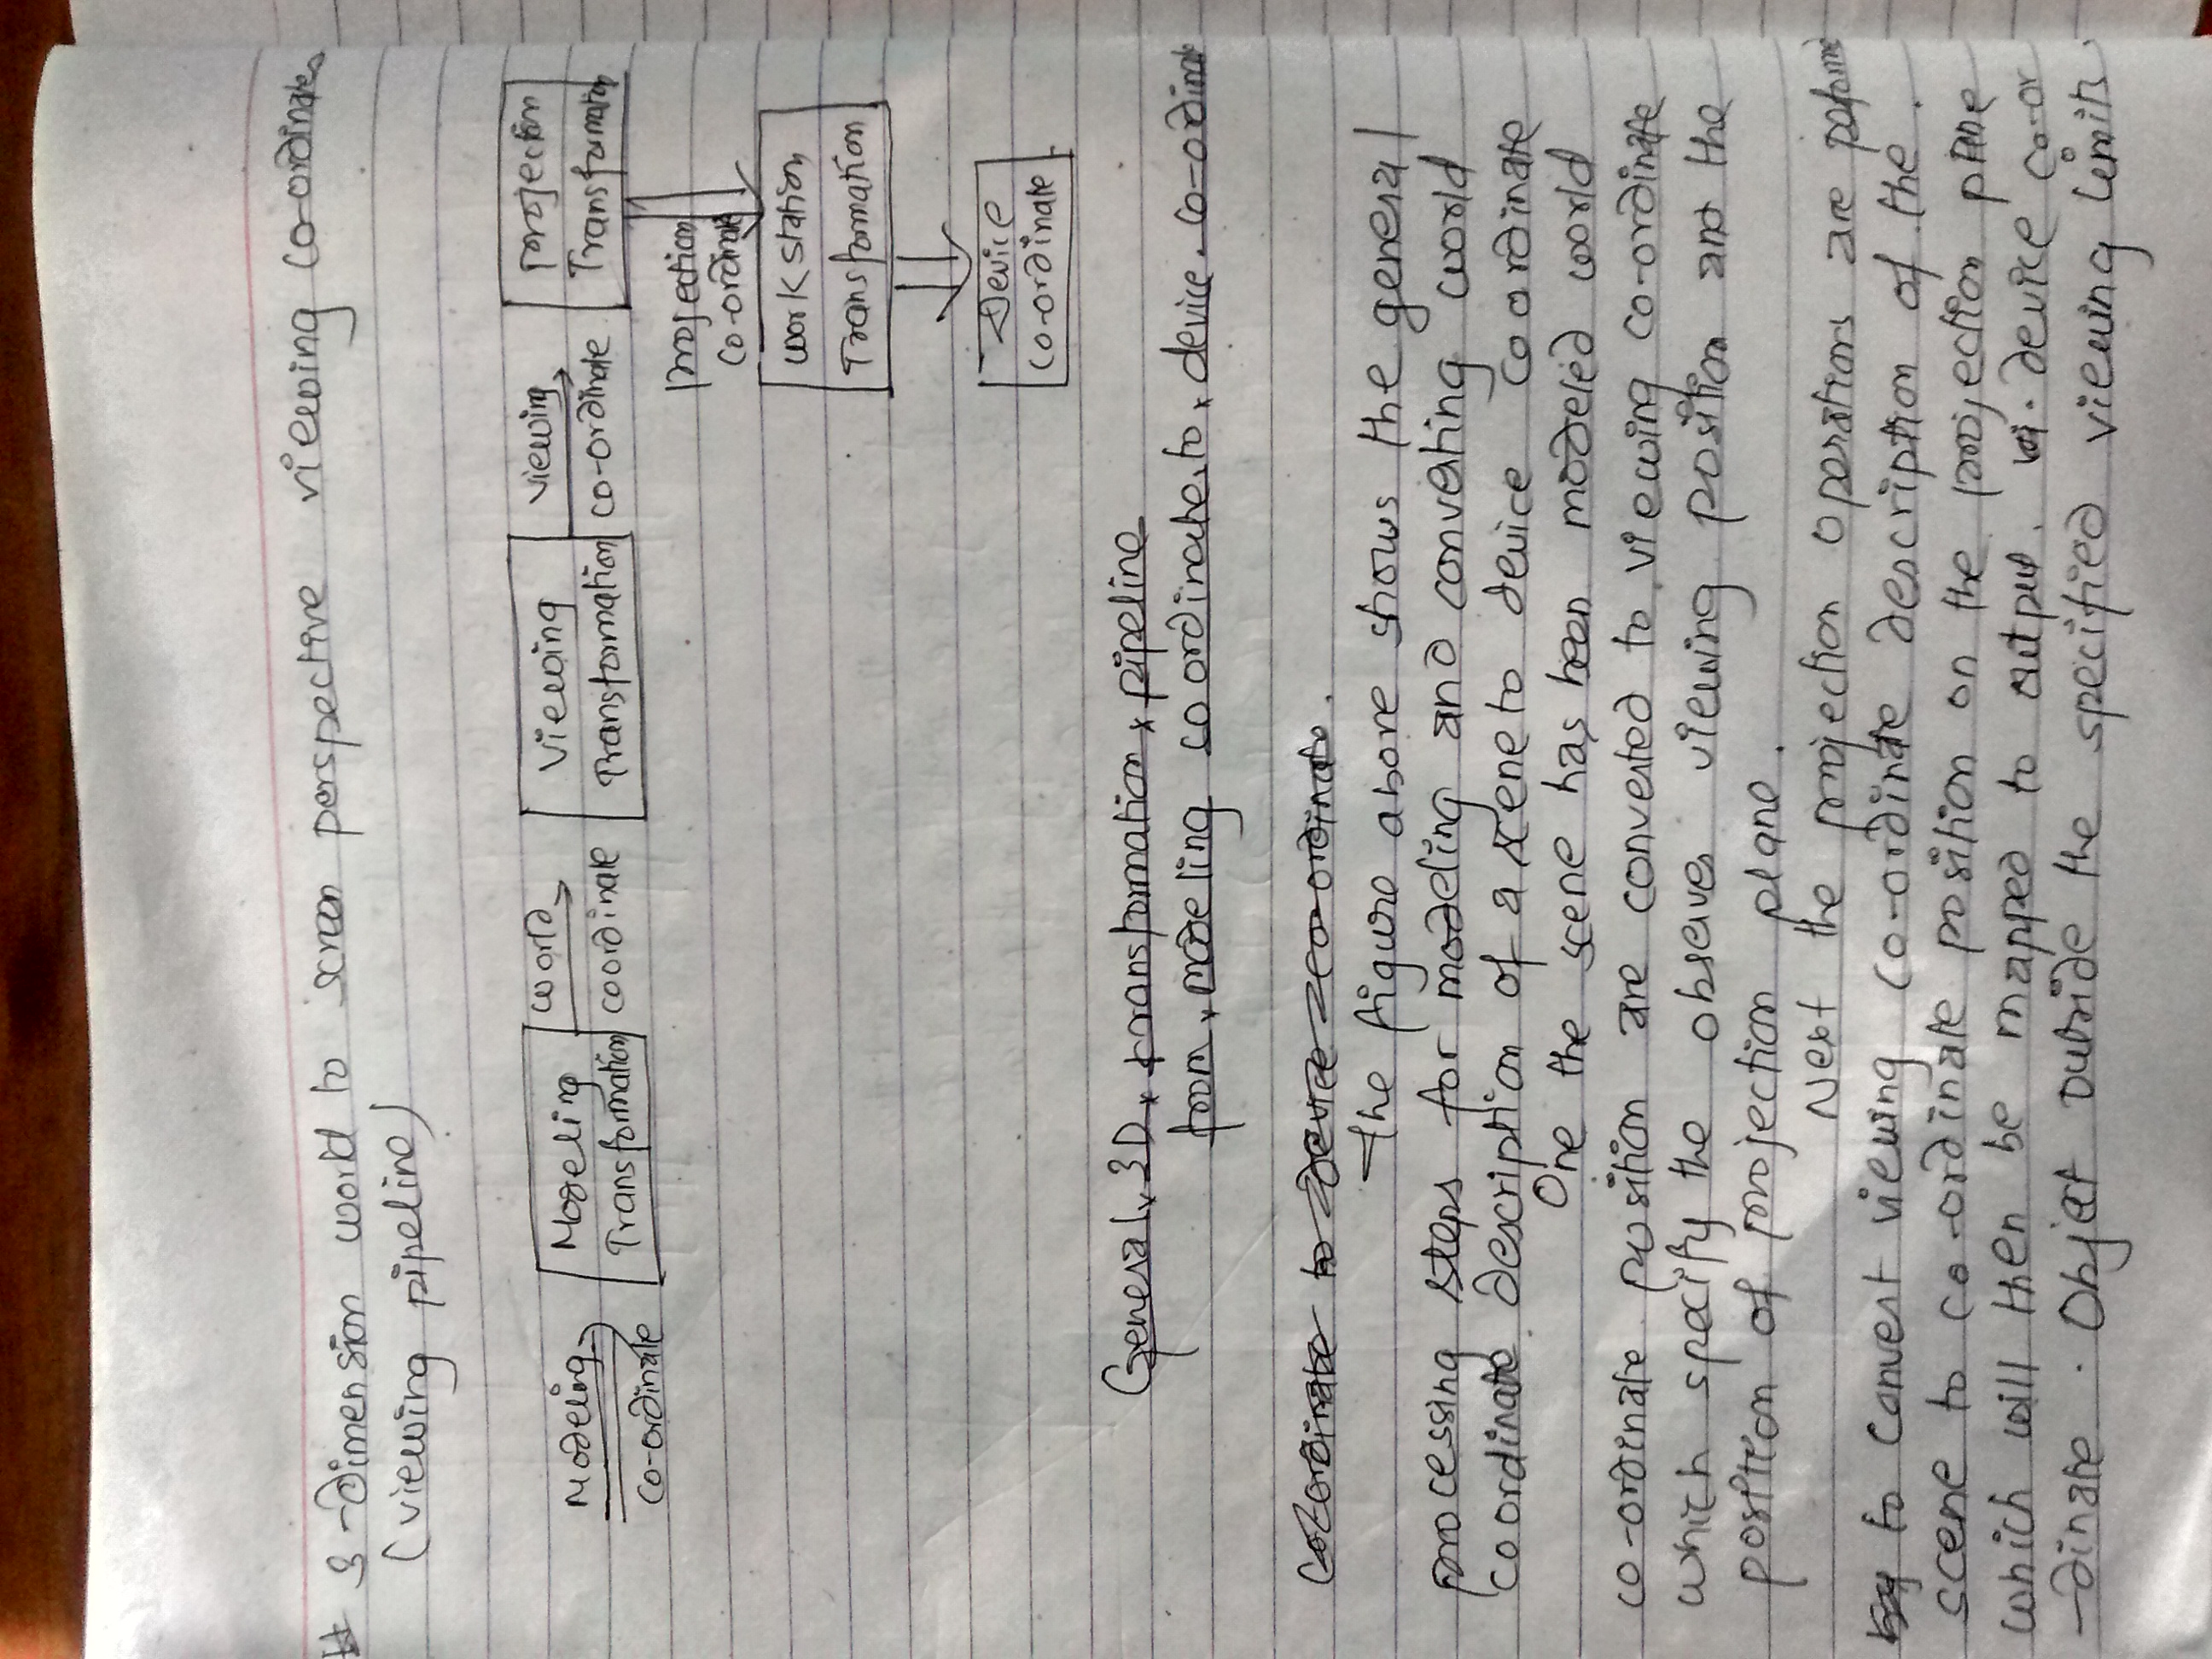 # 3-dimension world to screen perspective viewing co-ordinates
(viewing pipeline)
Modeling
co-ordinate
Modeling
Transformation
world
coordinate
Viewing
Transformation
viewing
co-ordinate
projection
Transformation
projection
co-ordinate
work station
Transformation
Device
co-ordinate
General 3D transformation pipeline
from modeling coordinate to device co-ordinate
Co-ordinate to device co-ordinate.
The figure above shows the general
processing steps for modeling and converting world
coordinate description of a scene to device coordinate
One the scene has been modeled world
co-ordinate position are converted to viewing co-ordinate
which specify the observer viewing position and the
position of projection plane.
Next the projection operations are performed
to convert viewing co-ordinate description of the
scene to co-ordinate position on the projection plane
which will then be mapped to output device co-or
-dinate. Object outside the specified viewing limits